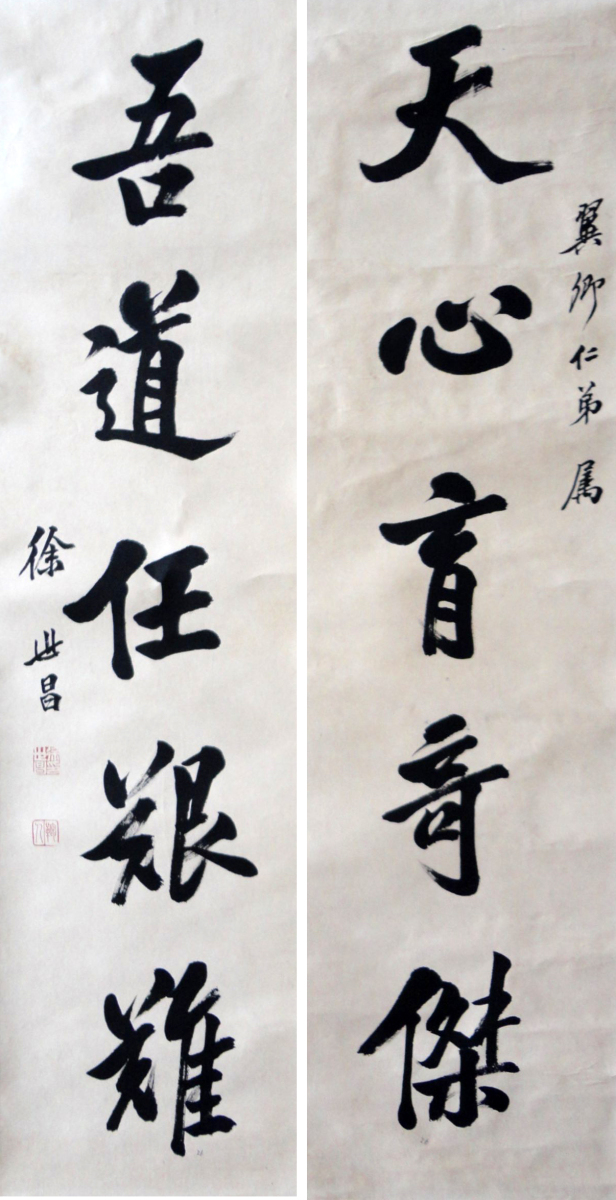 翼卿仁弟属
天心育奇傑
吾道任艱難
徐世昌